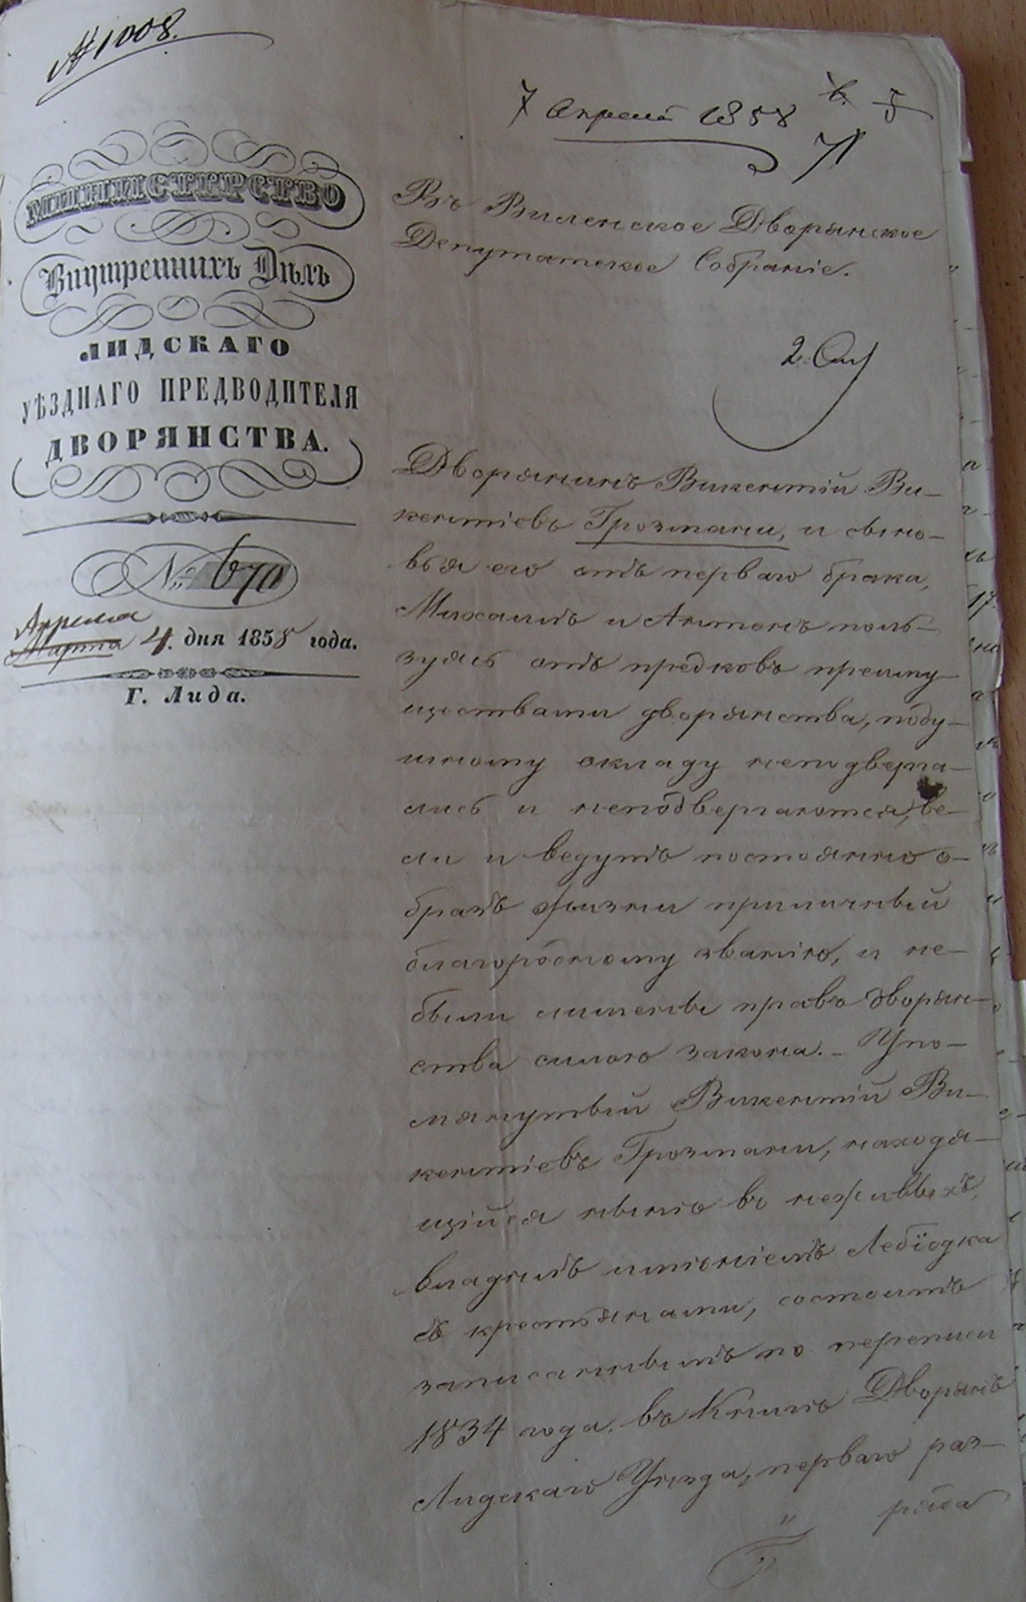 № 1008.
7 Апреля 1858
МИНИСТЕРСТВО
Внутреннихъ Дѣлъ
ЛИДСКАГО
УѢЗДНАГО ПРЕДВОДИТЕЛЯ
ДВОРЯНСТВА.
№ 670
Апреля
Марта 4. дня 1858 года.
Г. Лида.
Въ Виленское Дворянское
Депутатское Собраніе.
Дворянинъ Викентій Ви-
кентіевъ Грозмани, и сыно-
вья его отъ перваго брака,
Михаилъ и Антонъ поль-
зуясь отъ предковъ преиму-
ществами дворянства, поду-
шному окладу неподверга-
лись и неподвергаются, ве-
ли и ведутъ постоянно о-
бразъ жизни приличный
благородному званію, и не-
были лишены правъ дворян-
ства силою закона. - Упо-
мянутый Викентій Ви-
кентіевъ Грозмани, находя-
щійся нынѣ въ неживыхъ,
владѣлъ имѣніемъ Лебіодка
съ крестьянами, состоитъ
записаннымъ по переписи
1834 года въ Книгѣ Дворянъ
Лидскаго Уѣзда, перваго раз-
ряда